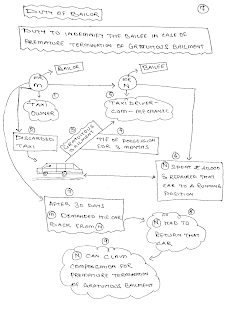 DUTY OF BAILOR
DUTY TO INDEMNIFY THE BAILEE IN CASE OF
PREMATURE TERMINATION OF GRATUITOUS BAILMENT
BAILOR
BAILEE
MR
M
MR
N
TAXI
OWNER
TAXI DRIVER-
CUM-MECHANIC
GRATUITOUS
BAILMENT
DISCARDED
TAXI
OF POSSESSION
FOR 3 MONTHS
N SPENT
& REPAIRED THAT
CAR TO A RUNNING
POSITION
AFTER 30 DAYS
M DEMANDED THE CAR
BACK FROM N
N HAD TO
RETURN THAT
CAR
N CAN CLAIM
COMPENSATION FOR
PREMATURE TERMINATION
OF GRATUITOUS BAILMENT